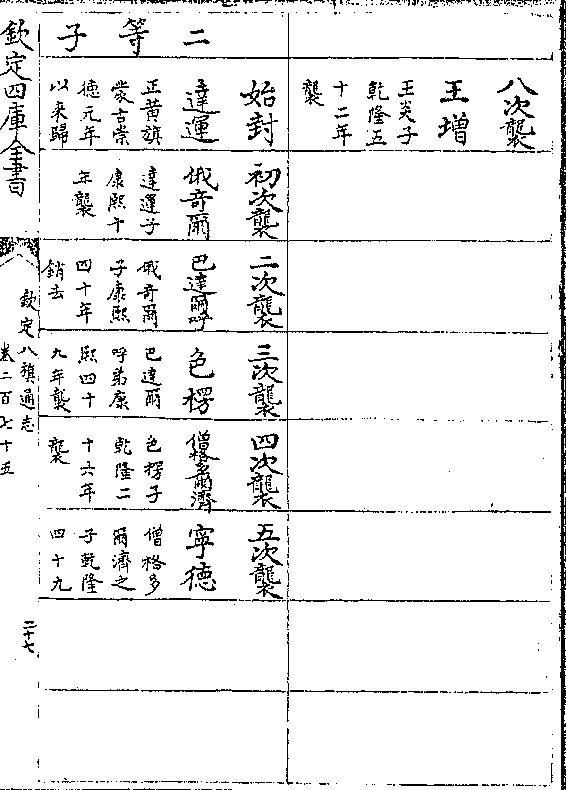 八次襲
王增
王炎子
乾隆五
十二年
襲
二等子
始封
達運
正黃旗
蒙古崇
德元年
以來歸
初次襲
俄奇爾
達運子
康熙十
年襲
二次襲
巴達爾呼
俄奇爾
子康熙
四十年
銷去
三次襲
色楞
巴達爾
呼弟康
熙四十
九年襲
四次襲
僧格多爾濟
色楞子
乾隆二
十六年
襲
五次襲
寧德
僧格多
爾濟之
子乾隆
四十九
欽定四庫全書
欽定八旗通志
卷二百七十五
二十七